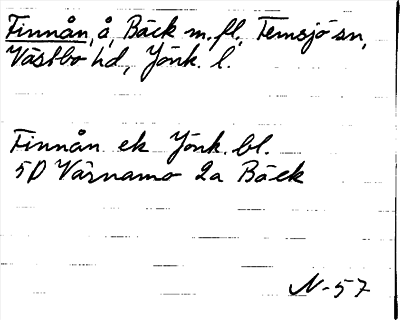 Finnån, å, Bäck m.fl., Femsjö sn,
Västbo hd, Jönk. l.
Finnån ek Jönk. bl.
5D Värnamo 2a Bäck
N-57